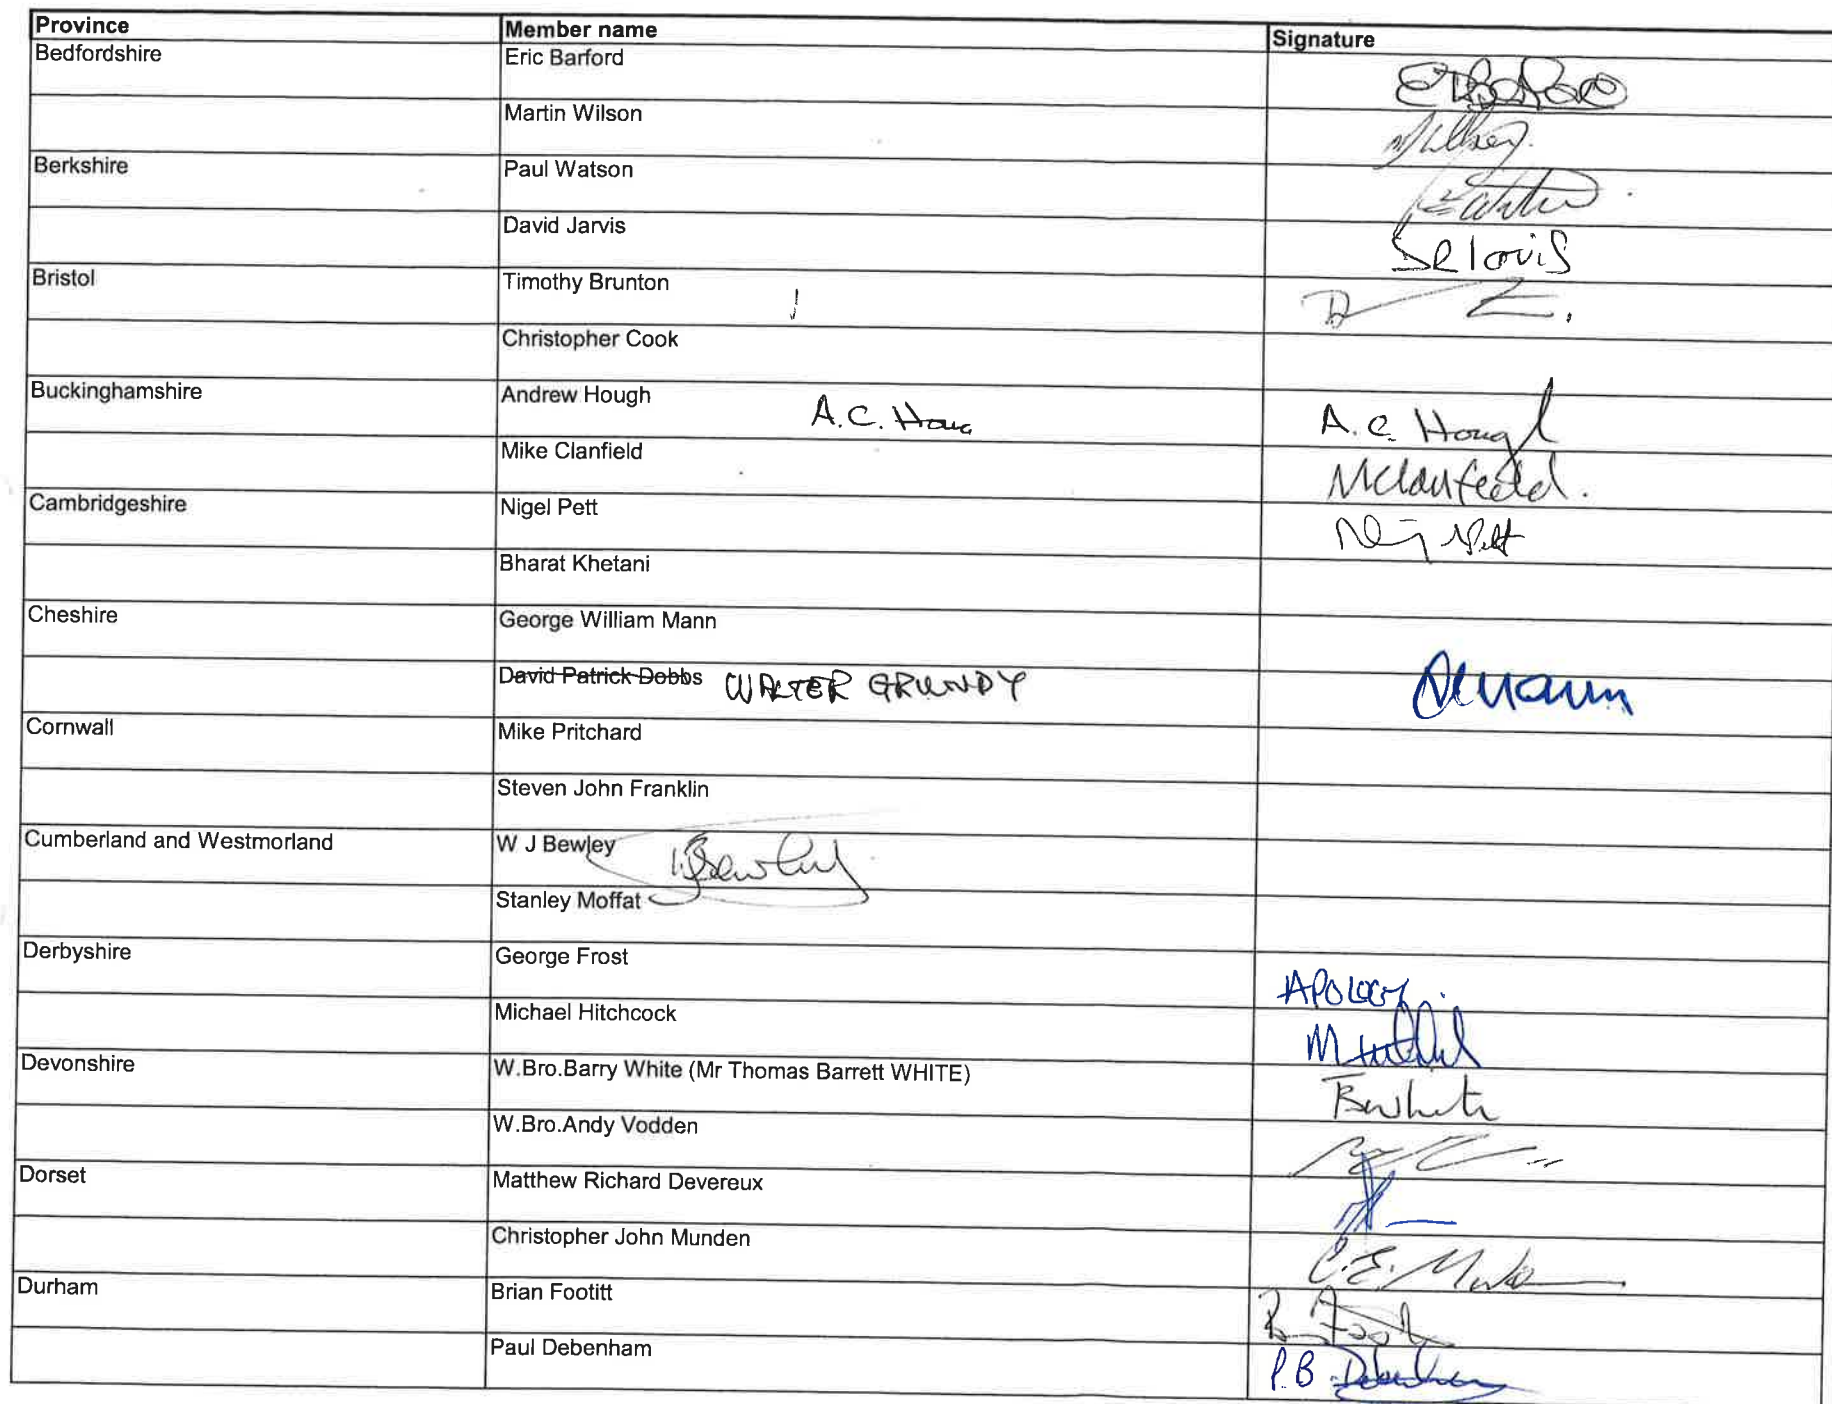 Province Member name Signature
Bedfordshire Eric Barford
Martin Wilson
Berkshire Paul Watson
David Jarvis
Bristol Timothy Brunton
Christopher Cook
Buckinghamshire Andrew Hough A.C. Houg A.C. Hough
Mike Clanfield MClanfield.
Cambridgeshire Nigel Pett Nig Pett
Bharat Khetani
Cheshire George William Mann
David Patrick Dobbs WALTER GRUNDY
Cornwall Mike Pritchard
Steven John Franklin
Cumberland and Westmorland W J Bewley Bewley
Stanley Moffat
Derbyshire George Frost APOLOGY.
Michael Hitchcock
Devonshire W.Bro.Barry White (Mr Thomas Barrett WHITE) TBWhite
W.Bro.Andy Vodden
Dorset Matthew Richard Devereux
Christopher John Munden
Durham Brian Footitt
Paul Debenham P.B Debenham